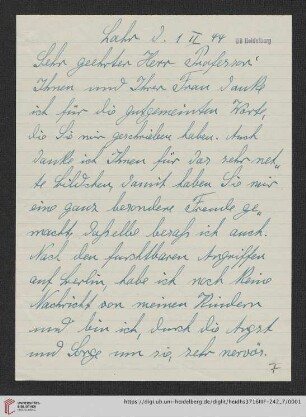 Lahr d. 1 II 44
UB Heidelberg
Sehr geehrter Herr Professor!
Ihnen und Ihrer Frau danke
ich für die gutgemeinten Worte,
die Sie mir geschrieben haben. Auch
danke ich Ihnen für das sehr net-
te Bildchen, damit haben Sie mir
eine ganz besondere Freude ge-
macht. Dasselbe besass ich auch.
Nach den furchtbaren Angriffen
auf Berlin, habe ich noch keine
Nachricht von meinen Kindern
und bin ich, durch die Angst
und Sorge um sie, sehr nervös.
7
UNIVERSITÄTS-
BIBLIOTHEK
HEIDELBERG
https://digi.ub.uni-heidelberg.de/diglit/heidhs3716IIIF-242_7/0001